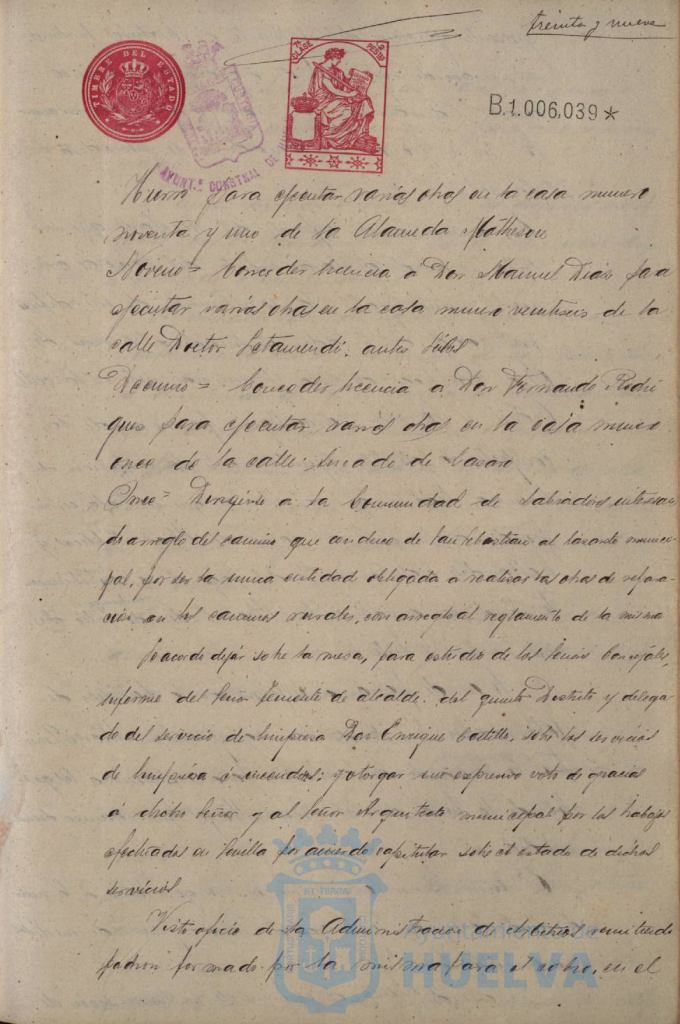 treinta y nueve
TIMBRE DEL ESTADO
7ª CLASE
PESETAS
B.1.006,039*
AYUNT.º CONSTNAL DE
para ejecutar varias obras en la casa numero
noventa y uno de la Alameda Matheson
Noveno= Conceder licencia á Don Manuel Diaz para
ejecutar varias obras en la casa numero veintiseis de la
calle Doctor Letamendi, antes
Decimo= Conceder licencia a Don Fernando Rodri
guez para ejecutar varias obras en la casa numero
once de la calle
Once= Dirigirse a la Comunidad de Labradores interesan
do arreglo del camino que conduce de San Sebastian al municí
pal, por ser la unica entidad obligada a realizar las obras de repara
ción en los caminos rurales, con arreglo al reglamento de la misma
Se acordo dejar sobre la mesa, para estudio de los Señores Concejales,
informe del Señor Teniente de alcalde del quinto Distrito y delega
do del servicio de limpieza Don Enrique Castillo, sobre los servicios
de limpieza é incendios; y otorgar un expresivo voto de gracias
á dicho Señor y al Señor Arquitecto municipal por los trabajos
efectuados en Sevilla por acuerdo capitular sobre el estado de dichos
servicios
Visto oficio de la Administracion de Arbitrios remitiendo
padron formado por la misma para el cobro, en el
Ayuntamiento de
HUELVA